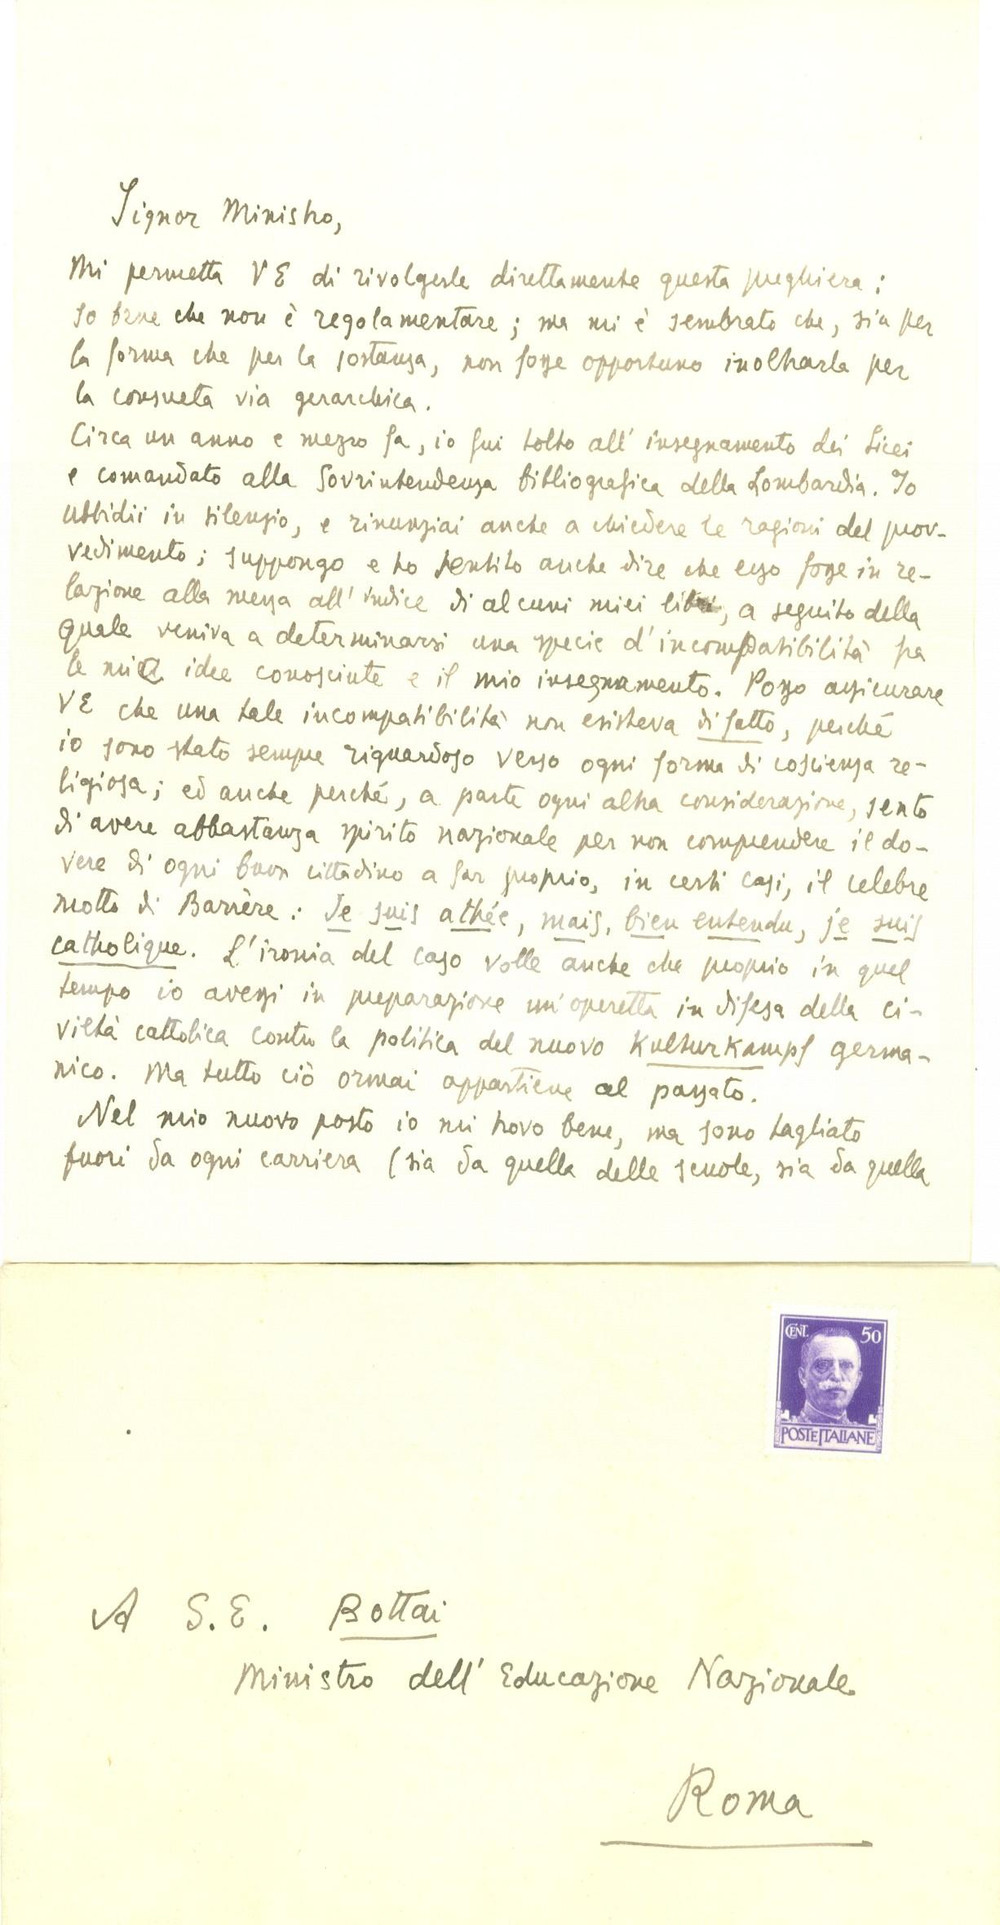 Signor Ministro,
Mi permetta VE di rivolgerle direttamente questa preghiera;
so bene che non è regolamentare; ma mi è sembrato che, sia per
la forma che per la sostanza, non fosse opportuno inoltrarla per
la consueta via gerarchica.
Circa un anno e mezzo fa, io fui tolto all' insegnamento dei Licei
e comandato alla Sovrintendenza bibliografica della Lombardia. Io
ubbidii in silenzio, e rinunziai anche a chiedere le ragioni del prov-
vedimento; suppongo e ho sentito anche dire che esso fosse in re-
lazione alla messa all' indice di alcuni miei libri, a seguito della
quale veniva a determinarsi una specie d' incompatibilità fra
le mie idee conosciute e il mio insegnamento. Posso assicurare
VE che una tale incompatibilità non esisteva di fatto, perché
io sono stato sempre riguardoso verso ogni forma di coscienza re-
ligiosa; ed anche perché, a parte ogni altra considerazione, sento
di avere abbastanza spirito nazionale per non comprendere il do-
vere di ogni buon cittadino a far proprio, in certi casi, il celebre
motto di Barrère: Je suis athée, mais, bien entendu, je suis
catholique. L'ironia del caso volle anche che proprio in quel
tempo io avessi in preparazione un'operetta in difesa della ci-
viltà cattolica contro la politica del nuovo Kulturkampf germa-
nico. Ma tutto ciò ormai appartiene al passato.
Nel mio nuovo posto io mi trovo bene, ma sono tagliato
fuori da ogni carriera (sia da quella delle scuole, sia da quella
CENT. 50
POSTE ITALIANE
A S.E. Bottai
Ministro dell' Educazione Nazionale
Roma